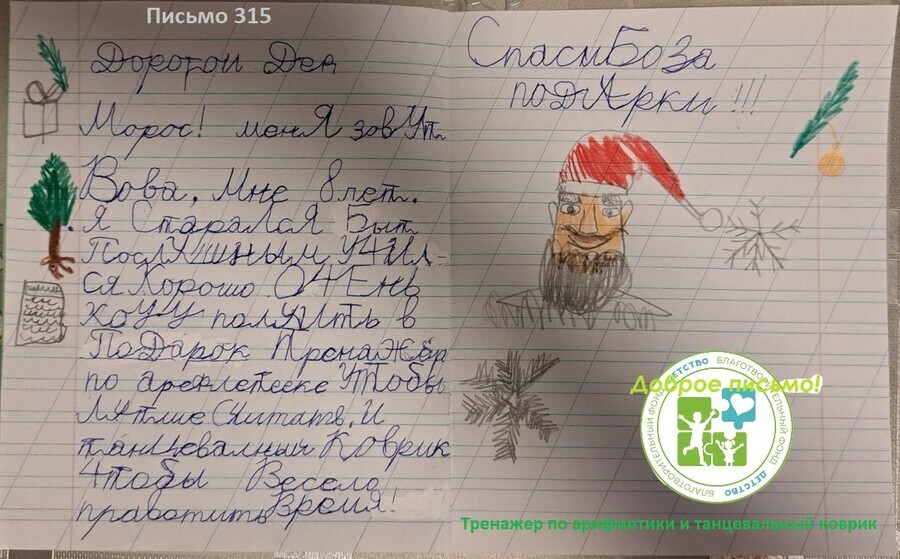 Письмо 315
Дорогои Дед
Морос! меня зовут
Вова. Мне 8 лет.
Я Старался Быт
Послушным училься Хорошо ОЧЕнь
хочу получить в
Подарок Тренажёр
по
чтобы
Считать. И
танцевалний Коврик
Чтобы Весело
Время!
Спасибо За
подарки!!!
Доброе письмо!
БЛАГОТВОРИТЕЛЬНЫЙ ФОНД ДЕТСТВО
БЛАГОТВОРИТЕЛЬНЫЙ ФОНД ДЕТСТВО
Тренажер по арифметики и танцевальный коврик